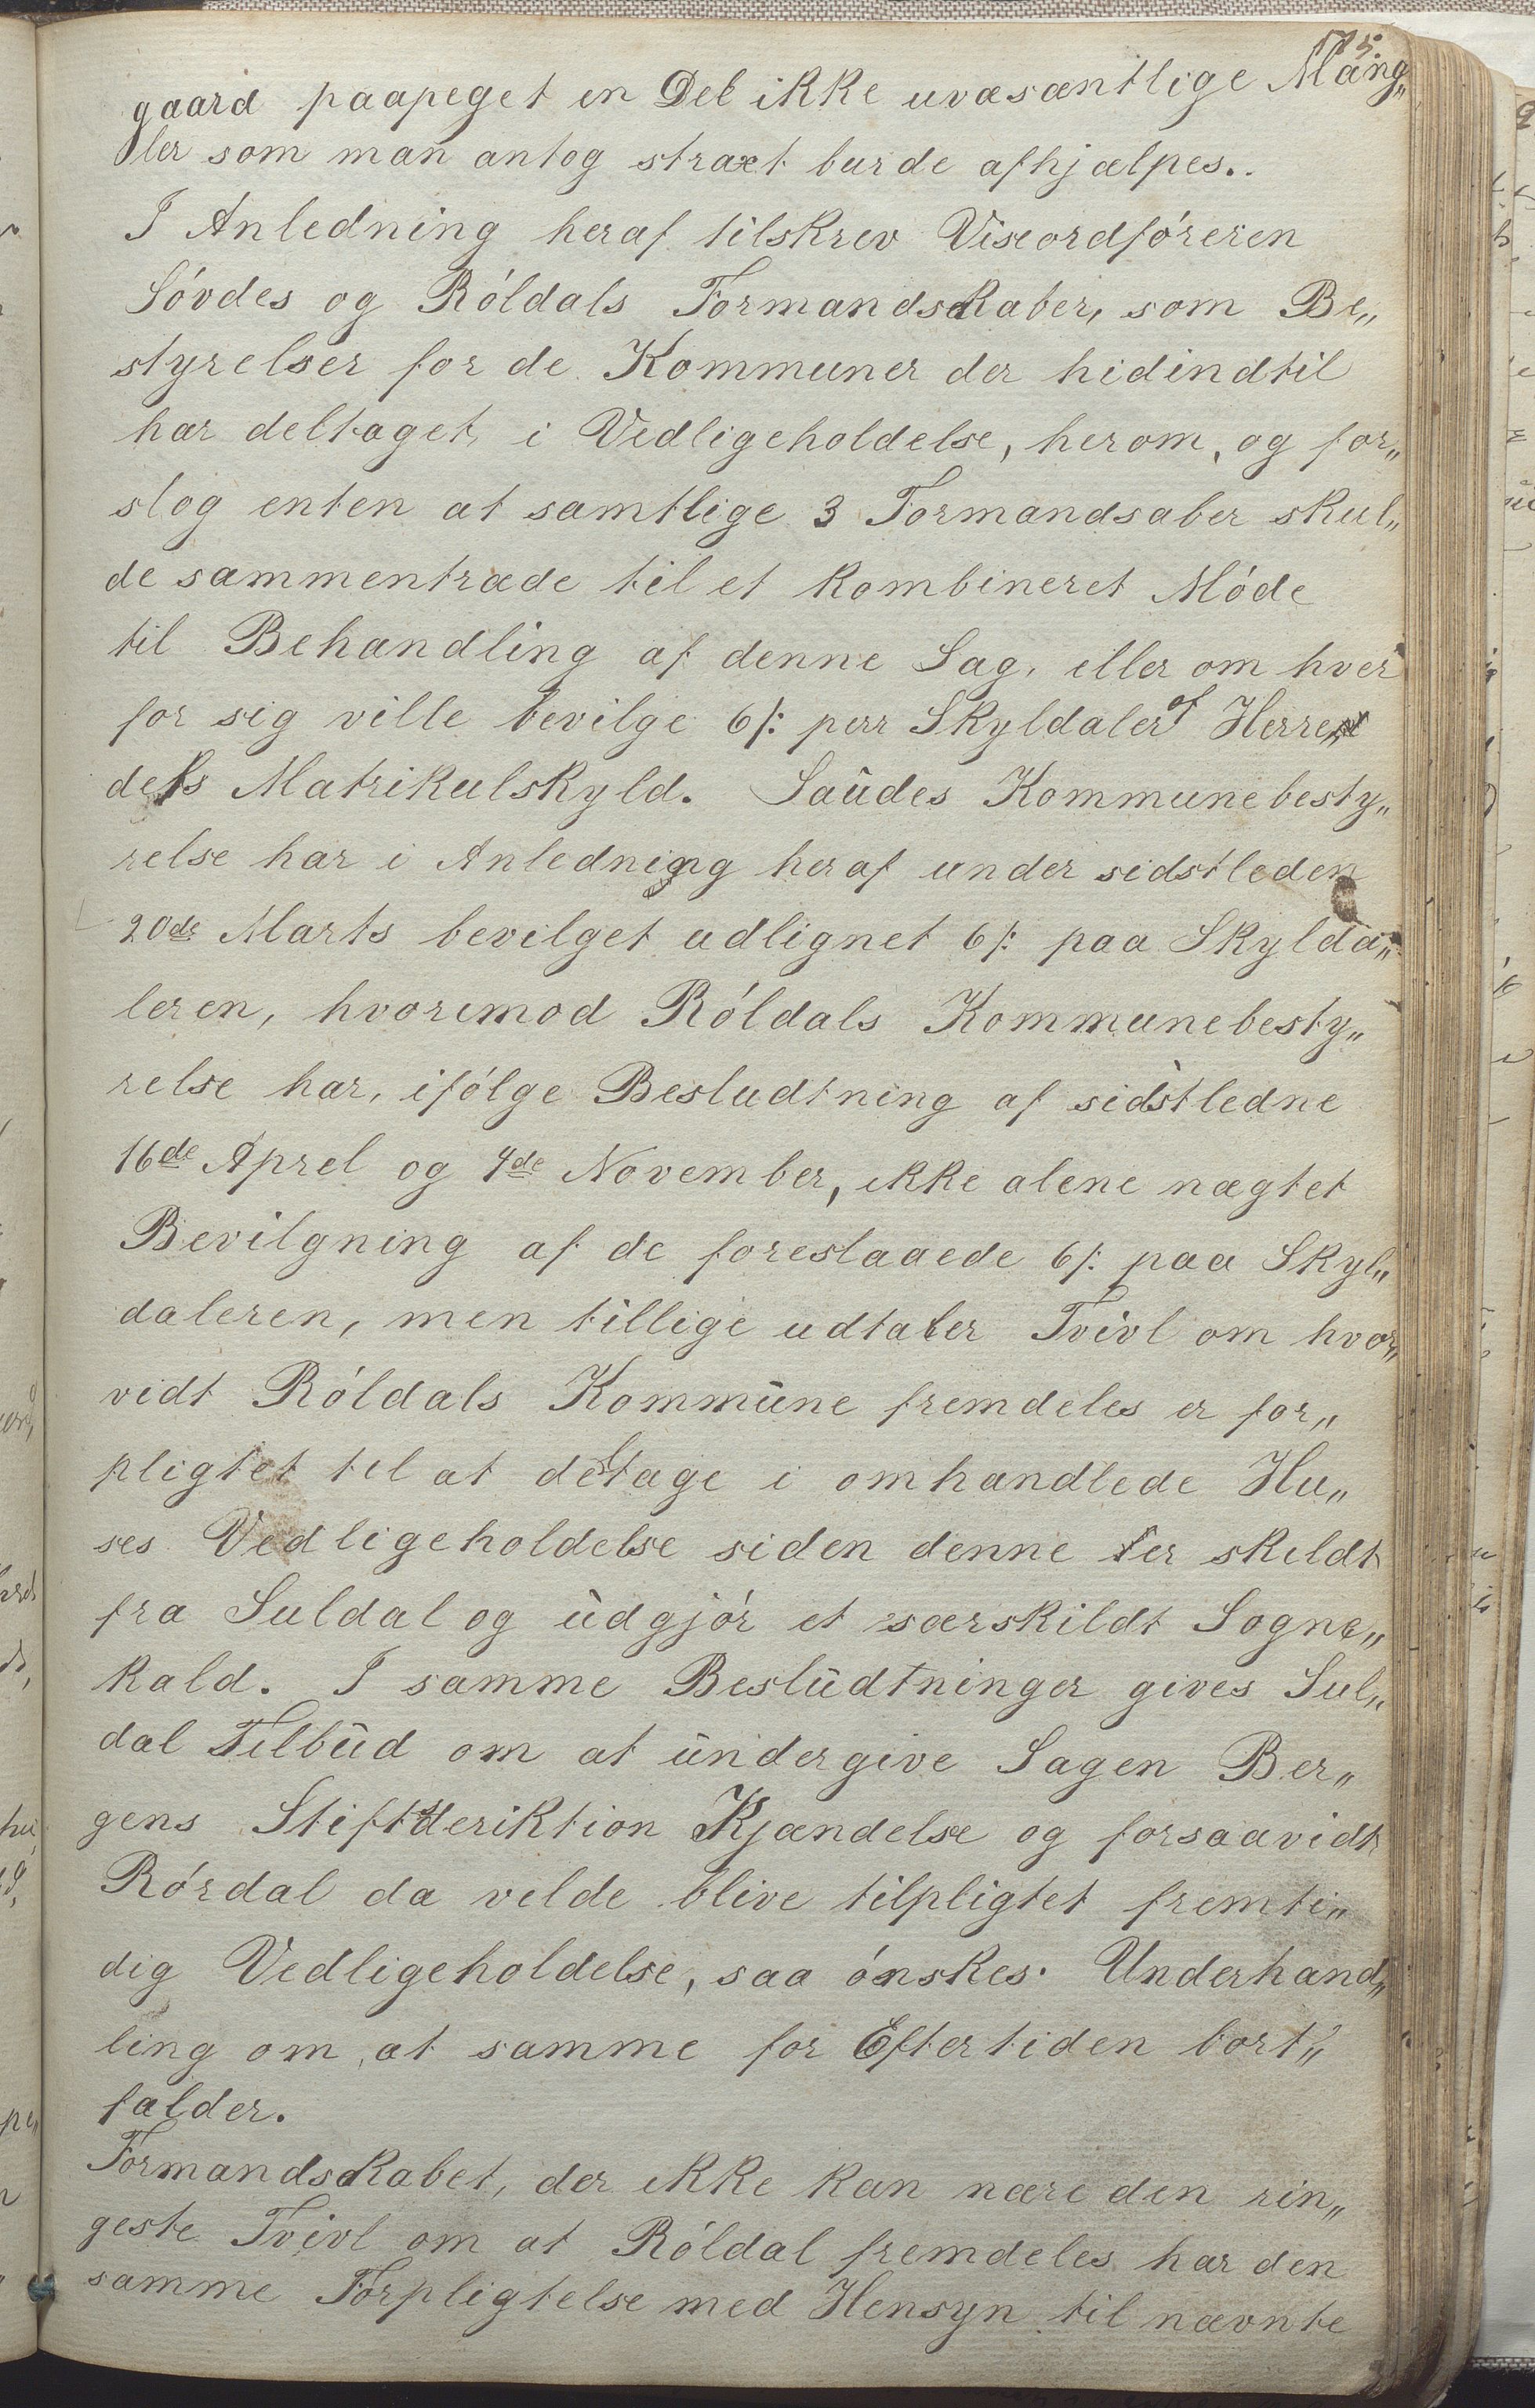 175.
gaard paapeget en Del ikke uvæsæntlige Mäng„
ler som man antog straxt burde afhjælpes..
I Anledning heraf tilskrev Viseordføreren
Søvdes og Røldals Formandskaber, som Be„
styrelser for de Kommuner der hidindtil
har deltaget i Vedligeholdelse, herom, og for„
slog enten at samtlige 3 Formandsaber skul„
de sammentræde til et kombineret Møde
til Behandling af denne Sag, eller om hver
for sig ville bevilge 6 /: perr Skyldaler af Herre„
dets Matrikulskyld. Saudes Kommunebesty„
relse har i Anledning heraf under sidstleden
20de Marts bevilget udlignet 6 /: paa Skylda„
leren, hvorimod Røldals Kommunebesty„
relse har, ifølge Besludtning af sidstledne
16de Aprel og 4de November, ikke alene nægtet
Bevilgning af de foreslaaede 6 /: paa Skyl„
daleren, men tillige udtaler Tvivl om hvor„
vidt Røldals Kommune fremdeles er for„
pligtet til at deltage i omhandlede Hu„
ses Vedligeholdelse siden denne er skeldt
fra Suldal og udgjør et særskildt Sogne„
kald. I samme Besludtninger gives Sul„
dal Tilbud om at undergive Sagen Ber„
gens Stiftsderiktion Kjændelse og forsaavidt
Rørdal da velde blive tilpligtet fremti„
dig Vedligeholdelse, saa ønskes Underhand„
ling om at samme for Eftertiden bort„
falder.
Formandskabet, der ikke kan nære den rin„
geste Tvivl om at Røldal fremdeles har den
samme Forpligtelse med Hensyn til nævnte